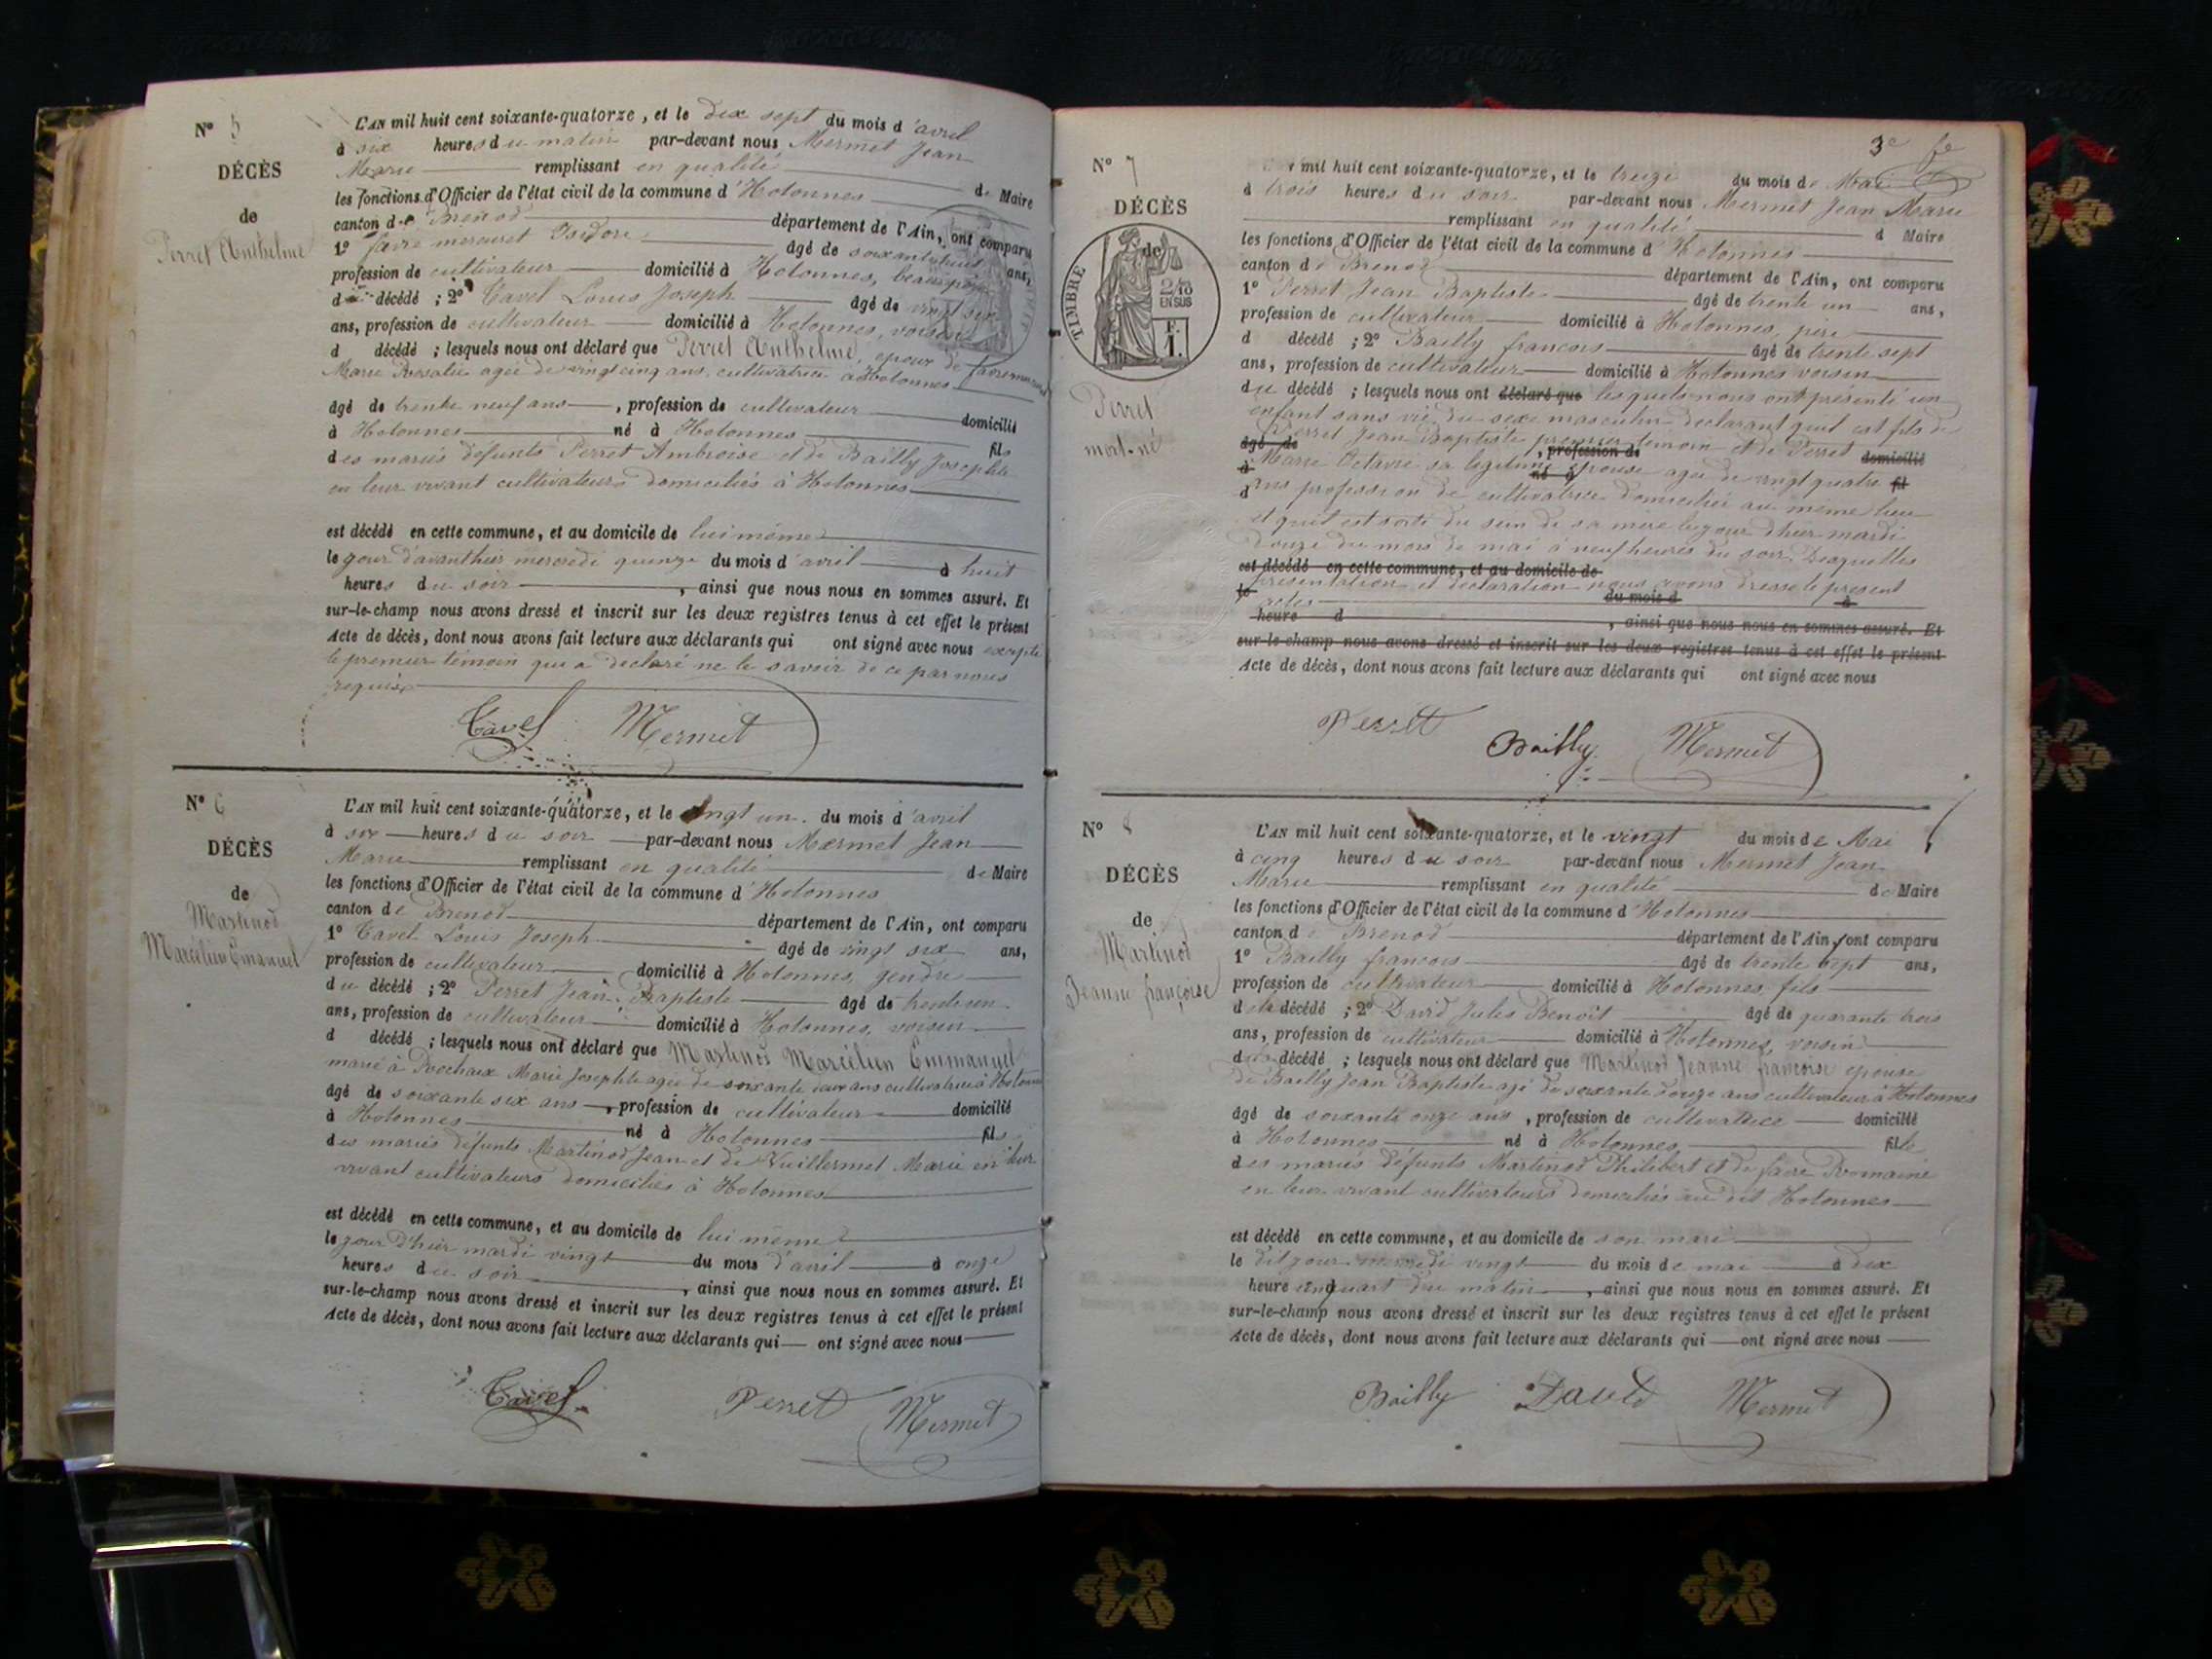 N° 5
DÉCÈS
de
Perret Anthelme
L'AN mil huit cent soixante-quatorze, et le dix sept du mois d'avril
à six heures du matin par-devant nous Mermet Jean
Marie remplissant en qualité de Maire
les fonctions d'Officier de l'état civil de la commune d'Hotonnes
canton de Brenod département de l'Ain, ont comparu
1° favre mercuret Isidore âgé de ans,
profession de cultivateur domicilié à Hotonnes,
d décédé ; 2° Tavel Louis Joseph âgé de vingt six
ans, profession de cultivateur domicilié à Hotonnes, voisin
d décédé ; lesquels nous ont déclaré que Perret Anthelme, epoux de
Marie Rosalie agée de vingt cinq ans, cultivatrice à Hotonnes
âgé de trente neuf ans, profession de cultivateur domicilié
à Hotonnes né à Hotonnes fils
des mariés défunts Perret Ambroise et de Bailly Josephte
en leur vivant cultivateurs domiciliés à Hotonnes
est décédé en cette commune, et au domicile de lui même
le jour d'avant hier mercredi quinze du mois d'avril à huit
heures du soir, ainsi que nous nous en sommes assuré. Et
sur-le-champ nous avons dressé et inscrit sur les deux registres tenus à cet effet le présent
Acte de décès, dont nous avons fait lecture aux déclarants qui ont signé avec nous excepté
le premier témoin qui a déclaré ne le savoir de ce par nous
requis
Tavel Mermet
N° 6
DÉCÈS
de
Martinod
Marcélien Emanuel
L'AN mil huit cent soixante-quatorze, et le vingt un du mois d'avril
à six heures du soir par-devant nous Mermet Jean
Marie remplissant en qualité de Maire
les fonctions d'Officier de l'état civil de la commune d'Hotonnes
canton de Brenod département de l'Ain, ont comparu
1° Tavel Louis Joseph âgé de vingt six ans,
profession de cultivateur domicilié à Hotonnes, gendre
du décédé ; 2° Perret Jean Baptiste âgé de trente un
ans, profession de cultivateur domicilié à Hotonnes, voisin
d décédé ; lesquels nous ont déclaré que Martinod Marcélien Emmanuel
marié à Marie Josephte agée de soixante deux ans cultivatrice à Hotonnes
âgé de soixante six ans, profession de cultivateur domicilié
à Hotonnes né à Hotonnes fils
des mariés défunts Martinod Jean et de Vuillermet Marie en leur
vivant cultivateurs domiciliés à Hotonnes
est décédé en cette commune, et au domicile de lui même
le jour d'hier mardi vingt du mois d'avril à onze
heures du soir, ainsi que nous nous en sommes assuré. Et
sur-le-champ nous avons dressé et inscrit sur les deux registres tenus à cet effet le présent
Acte de décès, dont nous avons fait lecture aux déclarants qui ont signé avec nous
Tavel Perret Mermet
3e fe
N° 7
DÉCÈS
de
TIMBRE
2/10
EN SUS
F.
1.
Perret
mort-né
mil huit cent soixante-quatorze, et le treize du mois de Mai
à trois heures du soir par-devant nous Mermet Jean Marie
remplissant en qualité d Maire
les fonctions d'Officier de l'état civil de la commune d'Hotonnes
canton de Brenod département de l'Ain, ont comparu
1° Perret Jean Baptiste âgé de trente un ans,
profession de cultivateur domicilié à Hotonnes, père
d décédé ; 2° Bailly francois âgé de trente sept
ans, profession de cultivateur domicilié à Hotonnes voisin
du décédé ; lesquels nous ont déclaré que lesquels nous ont présenté un
enfant sans vie du sexe masculin déclarant qu'il est fils de
Perret Jean Baptiste premier témoin et de Perret
âgé de , profession de domicilié
Marie Octavie sa legitime epouse agée de vingt quatre
à né à fil
ans profession de cultivatrice domiciliée au même lieu
d
et qu'il est sorti du sein de sa mère le jour d'hier mardi
douze du mois de mai à neuf heures du soir. Desquelles
est décédé en cette commune, et au domicile de
présentation et déclaration nous avons dressé le présent
le du mois d à
acte
heure d , ainsi que nous nous en sommes assuré. Et
sur-le-champ nous avons dressé et inscrit sur les deux registres tenus à cet effet le présent
Acte de décès, dont nous avons fait lecture aux déclarants qui ont signé avec nous
Perret Bailly Mermet
N° 8
DÉCÈS
de
Martinod
Jeanne françoise
L'AN mil huit cent soixante-quatorze, et le vingt du mois de Mai
à cinq heures du soir par-devant nous Mermet Jean
Marie remplissant en qualité de Maire
les fonctions d'Officier de l'état civil de la commune d'Hotonnes
canton de Brenod département de l'Ain, ont comparu
1° Bailly francois âgé de trente sept ans,
profession de cultivateur domicilié à Hotonnes, fils
de la décédé ; 2° David Jules Benoît âgé de quarante trois
ans, profession de cultivateur domicilié à Hotonnes, voisin
de la décédé ; lesquels nous ont déclaré que Martinod Jeanne francoise epouse
de Bailly Jean Baptiste agé de soixante douze ans cultivateur à Hotonnes
âgé de soixante onze ans, profession de cultivatrice domicilié
à Hotonnes né à Hotonnes fille
des mariés défunts Martinod Philibert et de favre Romaine
en leur vivant cultivateurs domiciliés au dit Hotonnes
est décédé en cette commune, et au domicile de son mari
le dit jour mercredi vingt du mois de mai à dix
heure un quart du matin, ainsi que nous nous en sommes assuré. Et
sur-le-champ nous avons dressé et inscrit sur les deux registres tenus à cet effet le présent
Acte de décès, dont nous avons fait lecture aux déclarants qui ont signé avec nous
Bailly David Mermet